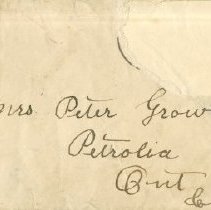 Mrs Peter Grow
Petrolia
Ont